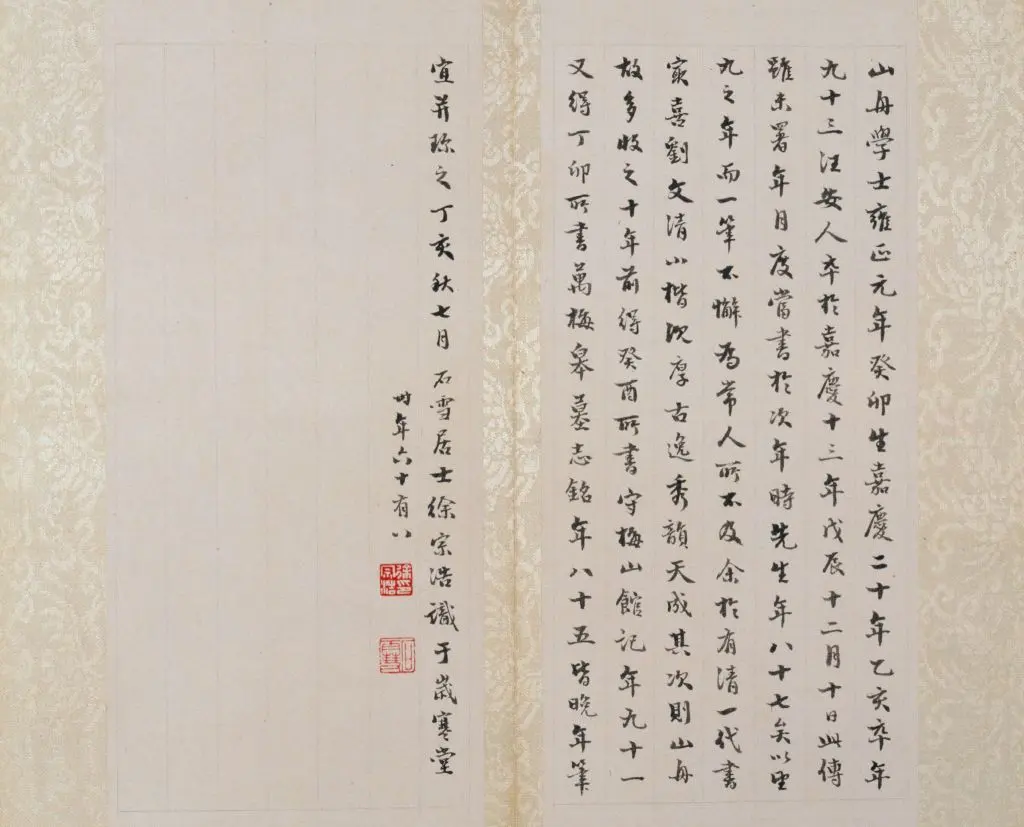 山舟學士雍正元年癸卯生嘉慶二十年乙亥卒年
九十三汪安人卒於嘉慶十三年戊辰十二月十日此傳
雖未署年月度當書於次年時先生年八十七矣以望
九之年而一筆不懈為常人所不及余於有清一代書
㝡喜劉文清小楷沈厚古逸秀韻天成其次則山舟
故多收之十年前得癸酉所書守梅山館記年九十一
又得丁卯所書萬梅皋墓志銘年八十五皆晚年筆
宜并珍之丁亥秋七月石雪居士徐宗浩識于歲寒堂
時年六十有八
徐印宗浩
石雪